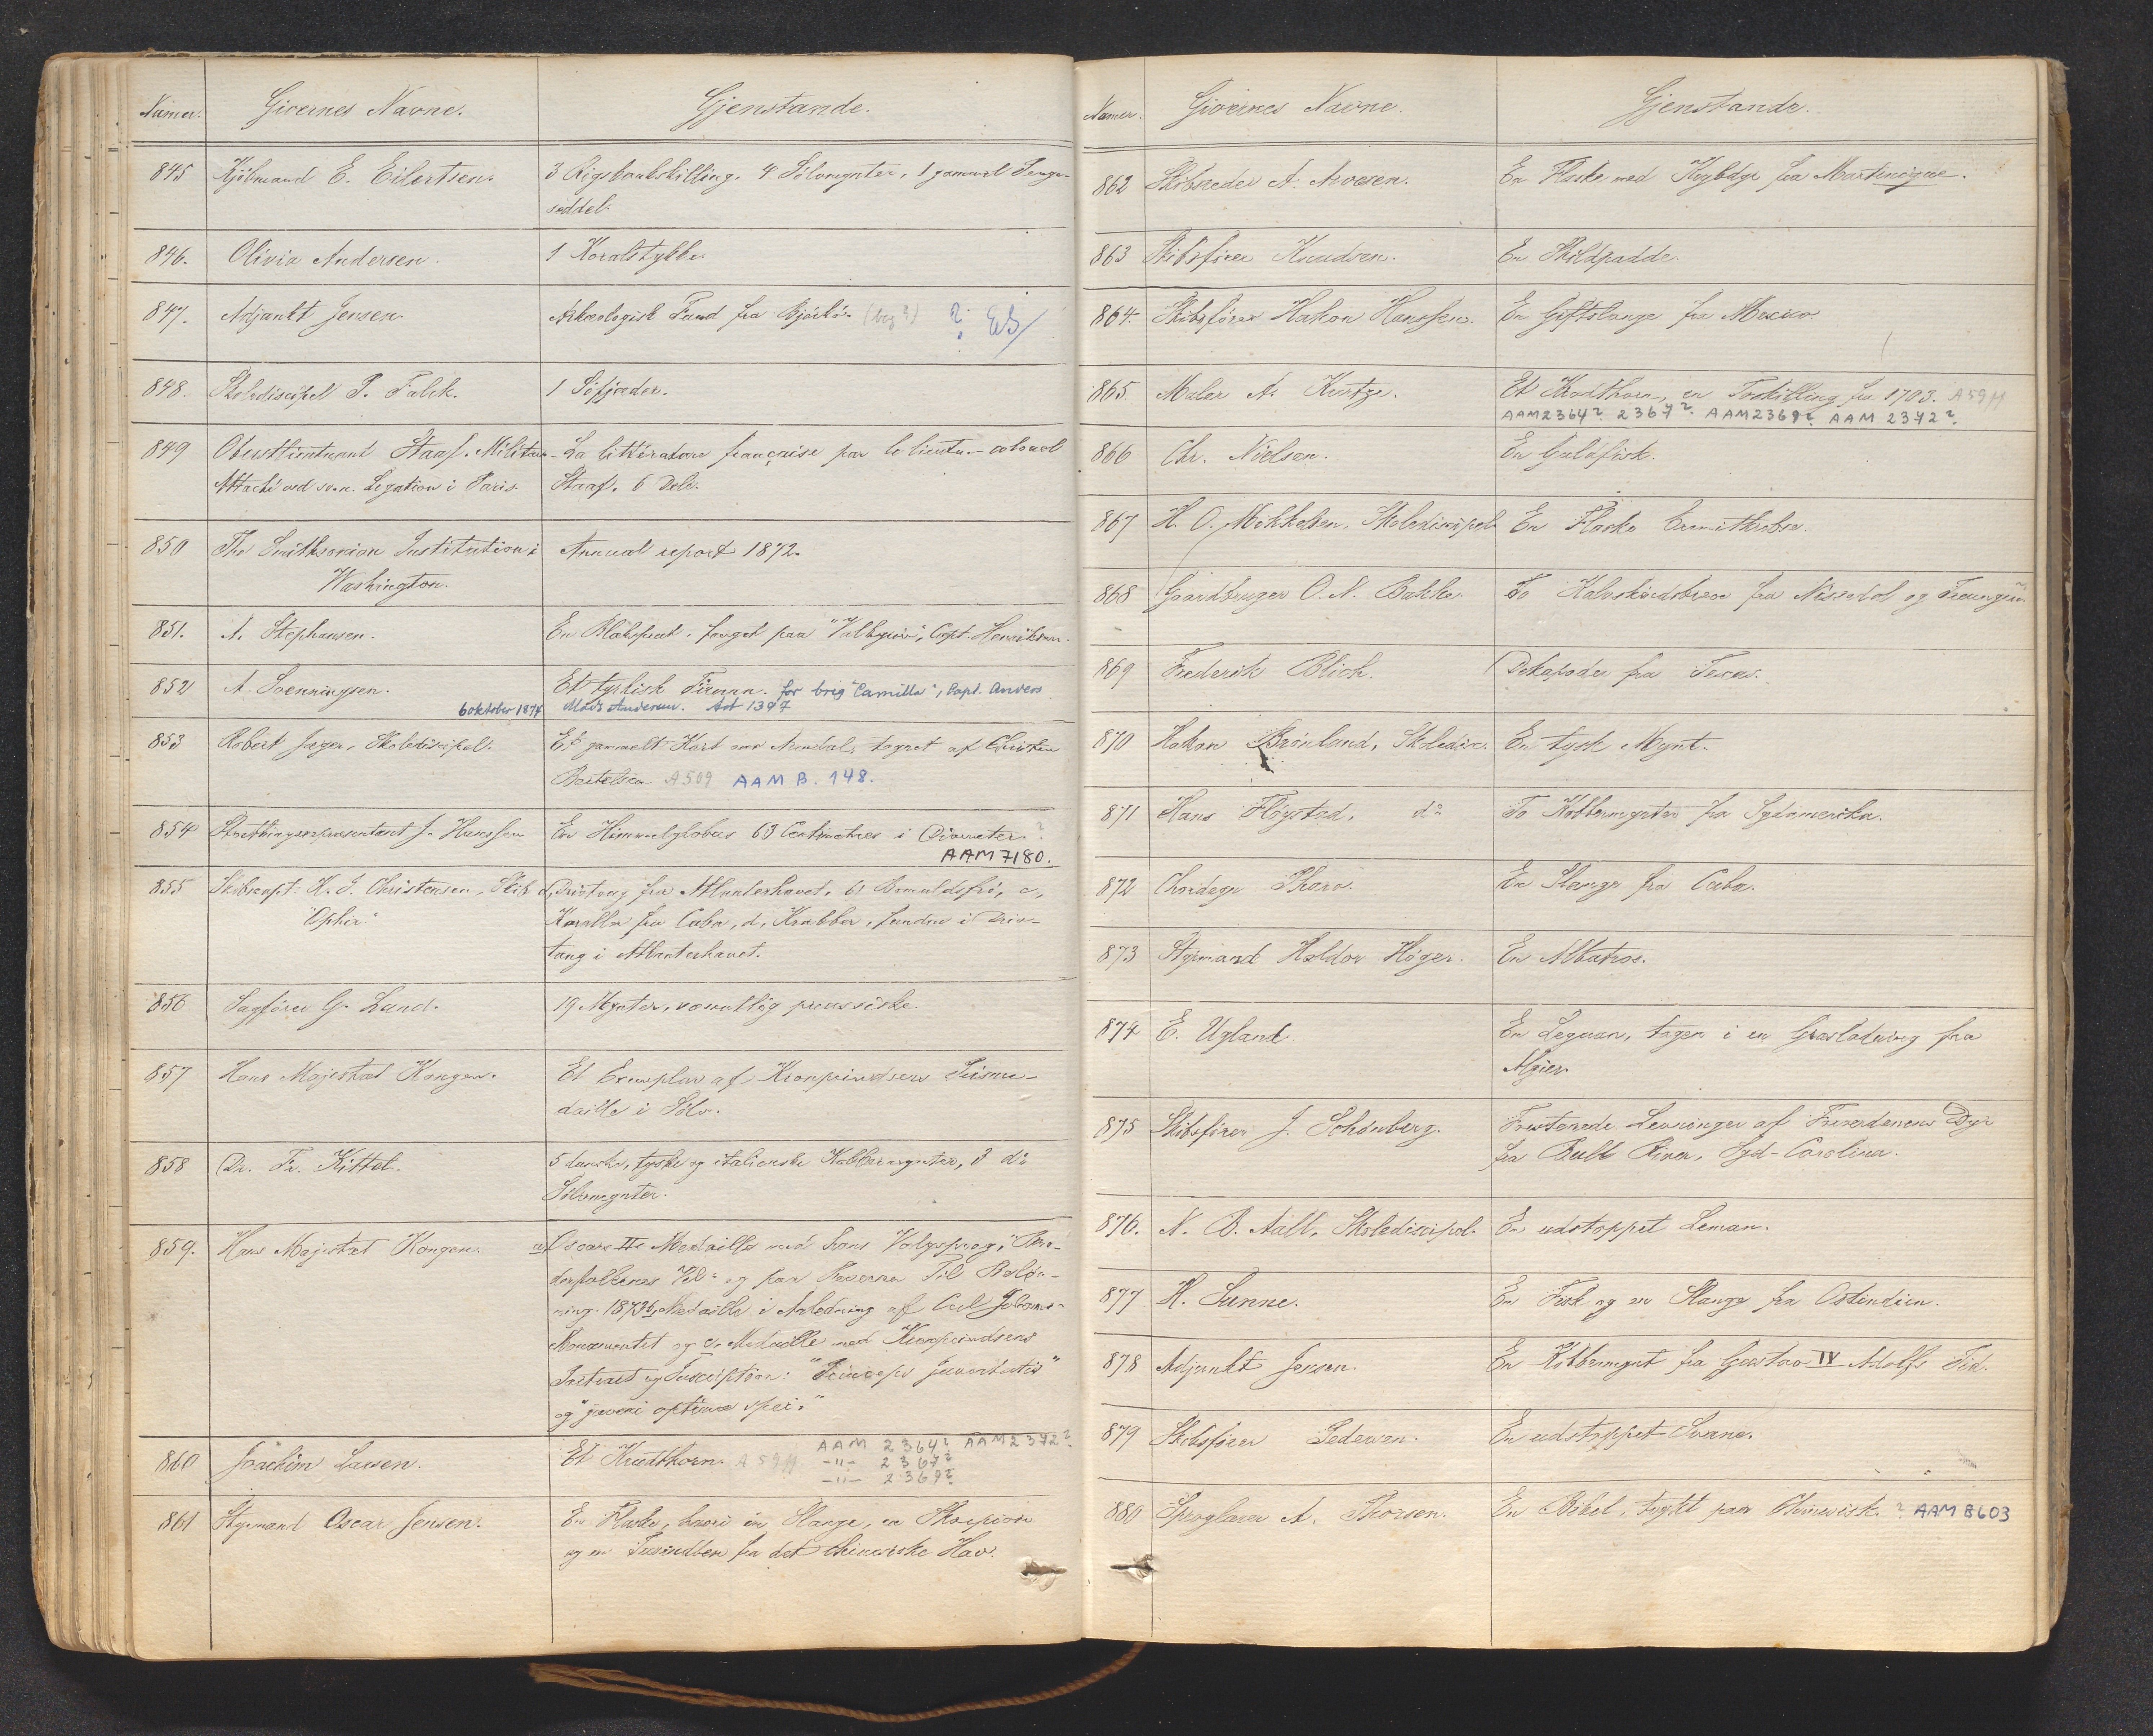 Numer. Givernes Navne. Gjenstande.
845 Kjöbmand E. Eilertsen. 3 Rigsbankskilling, 4 Sölvmynter, 1 gammel Penge-
seddel.
846. Olivia Andersen. 1 Koralstykke.
847. Adjunkt Jensen. Arkæologisk Fund fra Björkö.
848. Skolediscipel P. Falck. 1 Söfjæder.
849 Oberstlieutnant Staaf. Militær- La littérature française par le lieutn.-colonel
Attaché ved sv.n. Legation i Paris. Staaf. 6 Dele.
850 The Smithsonian Institution i Annual report 1872.
Washington.
851. A. Stephansen. En Blæksprut, fanget paa "Valkyrien", Capt. Henriksen.
852 A. Svenningsen. Et tyrkisk Firman. for brig "Camilla", Capt. Anders
6 oktober 1874 Mads Andersen. Ast 1377
853 Robert Jæger, Skolediscipel. Et gammelt Kart over Arendal, tegnet af Christen
Bertelsen. A509 AAM B. 148.
854 Storthingsrepræsentant J. Hansen En Himmelglobus 63 Centimetres i Diameter ?
AAM 7180.
855 Skibscapt. K. J. Christensen, Skib a, Drivtang fra Atlanterhavet, b,
"Ophir" Koraller fra Cuba, d, Krabber, fundne i Driv-
tang i Atlanterhavet.
856 Sagförer G. Lund. 19 Mynter, væsentlig preussiske.
857 Hans Majestæt Kongen. Et Exemplar af Kronprindsens Prisme-
daille i Sölv.
858 Dr. Fr. Kittel. 5 danske, tyske og italienske Kobbermynter, 3 do
Sölvmynter.
859. Hans Majestæt Kongen. a, Oscars IIs Medaille med hans Valgsprog, "Brö-
derfolkenes Vel" og paa Reversen Til Belön-
ning. 1873 b, Medaille i Anledning af Carl Johans-
Monumentet og c, Medaille med Kronprindsens
Portræt og Inscription: "Princeps juventutis"
og "juveni optimæ spei."
860 Joachim Lassen. Et Krudthorn. A 59 AAM 2364? AAM 2372?
-"- 2367?
-"- 2369?
861 Styrmand Oscar Jensen. En Flaske, hvori en Slange, en Skorpion
og en Tusindben fra det chinesiske Hav.
Numer. Givernes Navne. Gjenstande.
862 Skibsreder A. Arvesen. En Flaske med Krybdyr fra Martinique.
863 Skibsförer Knudsen. En Skildpadde.
864. Skibsförer Hakon Hanssen. En Giftslange fra Mexico.
865. Maler A. Kintze. Et Krudthorn, en Toskilling fra 1703. A 59
AAM 2364? 2367? AAM 2369? AAM 2372?
866 Chr. Nielsen. En Guldfisk.
867 H. O. Mikkelsen, Skolediscipel En Flaske Eremitkrebse.
868 Gaardbruger O. N. Bakke. To fra Nissedal og Treungen.
869 Frederik Blich. Dekapoder fra Texas.
870 Hakon Brönlund, Skoledisc. En tysk Mynt.
871 Hans Flöystad, do To Kobbermynter fra Sydamerika.
872 Thora. En Slange fra Cuba.
873 Styrmand Haldor Höger. En Albatros.
874 E. Ugland En Leguan, tagen i en Græsladning fra
Algier.
875 Skibsförer J. Schönberg. Forstenede Levninger af Forverdenens Dyr
fra Bull River, Syd-Carolina.
876. N. B. Aall, Skolediscipel. En udstoppet Leman.
877 H. Sunne. En Fisk og en Slange fra Ostindien.
878 Adjunkt Jensen. En Kobbermynt fra Gustav IV Adolfs Tid.
879 Skibsförer Pedersen. En udstoppet Svane.
880 Sproglærer A. Thorsen. En Bibel, trykt paa Chinesisk. ? AAM B603